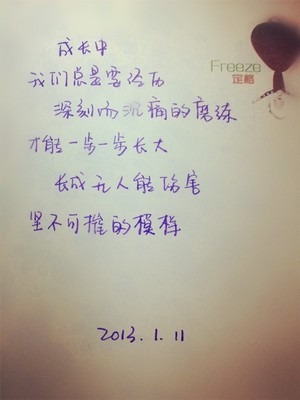 成长中
Freeze
定格
我们总是要经历
深刻而沉痛的磨练
才能一步一步长大
长成无人能伤害
坚不可摧的模样
2013.1.11